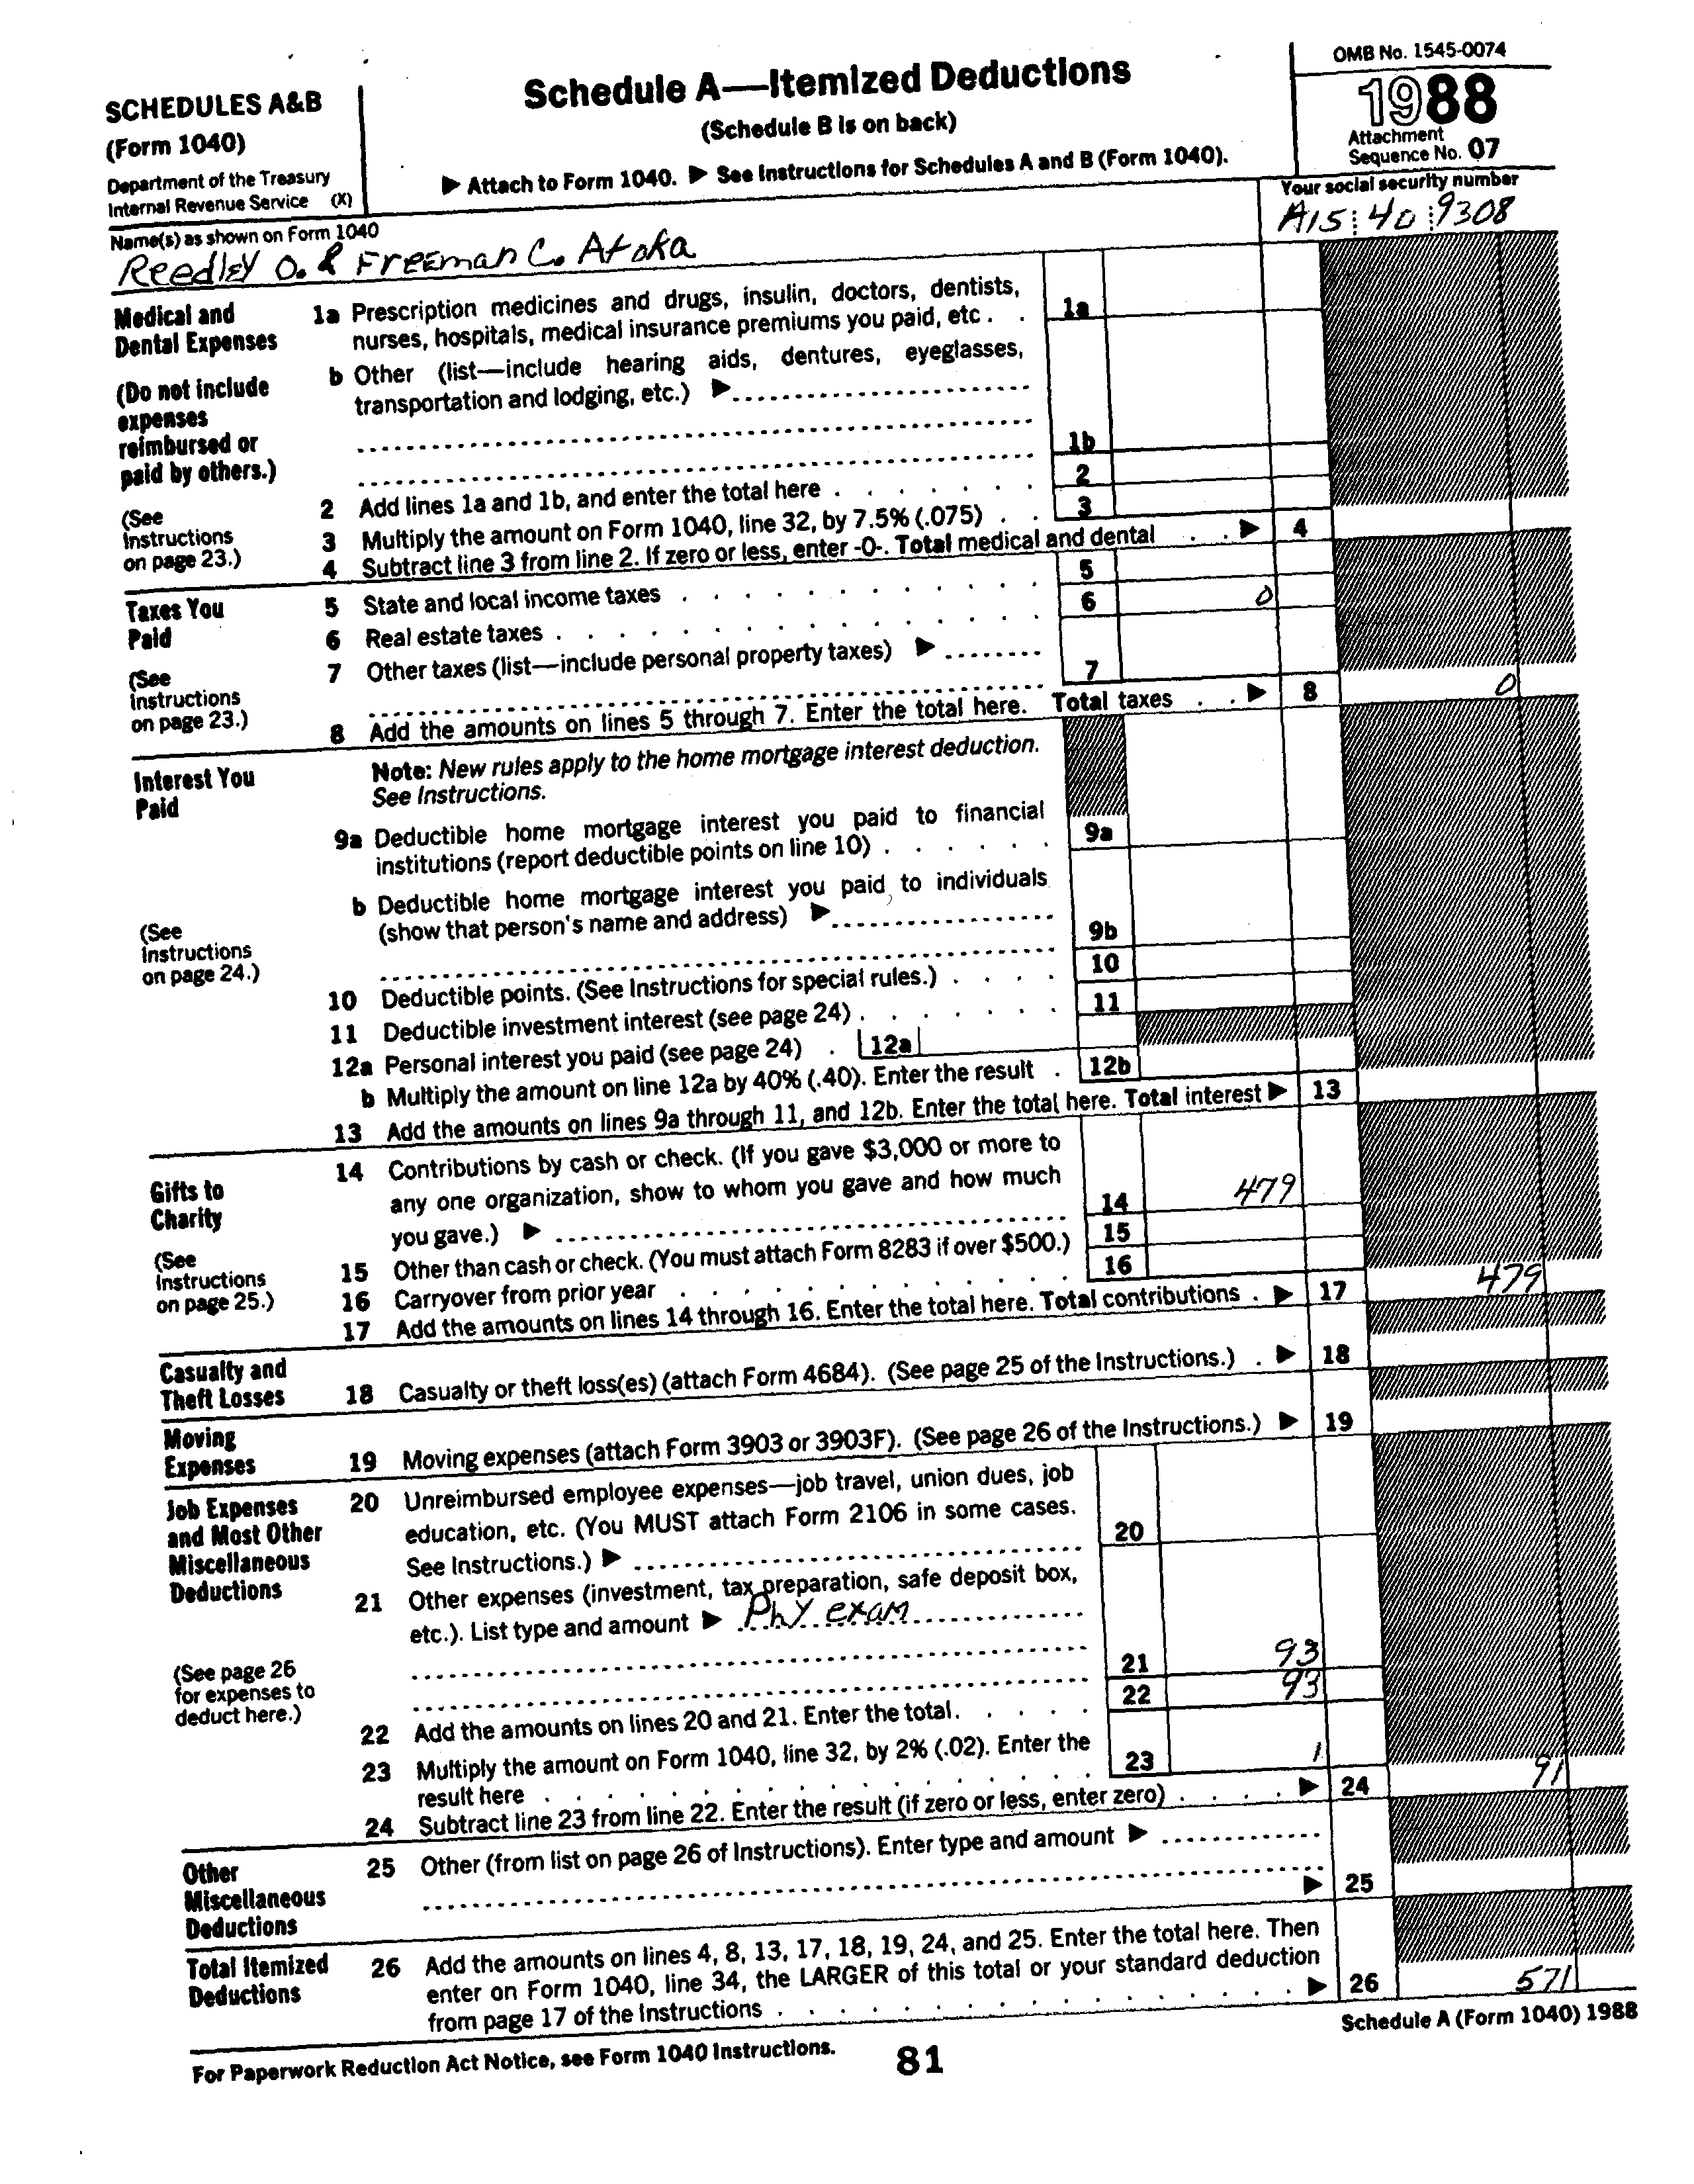 SCHEDULES A&B
(Form 1040)
Department of the Treasury
Internal Revenue Service (X)
Schedule A—Itemized Deductions
(Schedule B is on back)
▶ Attach to Form 1040. ▶ See Instructions for Schedules A and B (Form 1040).
OMB No. 1545-0074
1988
Attachment
Sequence No. 07
Name(s) as shown on Form 1040
Reedley O. & Freeman C. Atoka
Your social security number
A15 40 9308
Medical and
Dental Expenses
(Do not include
expenses
reimbursed or
paid by others.)
(See
Instructions
on page 23.)
1a Prescription medicines and drugs, insulin, doctors, dentists,
nurses, hospitals, medical insurance premiums you paid, etc . . 1a
b Other (list—include hearing aids, dentures, eyeglasses,
transportation and lodging, etc.) ▶
1b
2 Add lines 1a and 1b, and enter the total here . . . . . . . 2
3 Multiply the amount on Form 1040, line 32, by 7.5% (.075) . . 3
4 Subtract line 3 from line 2. If zero or less, enter -0-. Total medical and dental . . ▶ 4
Taxes You
Paid
(See
Instructions
on page 23.)
5 State and local income taxes . . . . . . . . . . 5
6 Real estate taxes . . . . . . . . . . . . 6 0
7 Other taxes (list—include personal property taxes) ▶
7
8 Add the amounts on lines 5 through 7. Enter the total here. Total taxes . . ▶ 8 0
Interest You
Paid
(See
Instructions
on page 24.)
Note: New rules apply to the home mortgage interest deduction.
See Instructions.
9a Deductible home mortgage interest you paid to financial
institutions (report deductible points on line 10) . . . . . . 9a
b Deductible home mortgage interest you paid to individuals
(show that person's name and address) ▶
9b
10 Deductible points. (See Instructions for special rules.) . . . . 10
11 Deductible investment interest (see page 24) . . . . . . . 11
12a Personal interest you paid (see page 24) . 12a
b Multiply the amount on line 12a by 40% (.40). Enter the result . 12b
13 Add the amounts on lines 9a through 11, and 12b. Enter the total here. Total interest ▶ 13
Gifts to
Charity
(See
Instructions
on page 25.)
14 Contributions by cash or check. (If you gave $3,000 or more to
any one organization, show to whom you gave and how much
you gave.) ▶ 14 479
15 Other than cash or check. (You must attach Form 8283 if over $500.) 15
16 Carryover from prior year . . . . . . . . . . 16
17 Add the amounts on lines 14 through 16. Enter the total here. Total contributions . ▶ 17 479
Casualty and
Theft Losses
18 Casualty or theft loss(es) (attach Form 4684). (See page 25 of the Instructions.) . ▶ 18
Moving
Expenses
19 Moving expenses (attach Form 3903 or 3903F). (See page 26 of the Instructions.) ▶ 19
Job Expenses
and Most Other
Miscellaneous
Deductions
(See page 26
for expenses to
deduct here.)
20 Unreimbursed employee expenses—job travel, union dues, job
education, etc. (You MUST attach Form 2106 in some cases.
See Instructions.) ▶ 20
21 Other expenses (investment, tax preparation, safe deposit box,
etc.). List type and amount ▶ Phy exam
21 93
22 Add the amounts on lines 20 and 21. Enter the total. . . . . 22 93
23 Multiply the amount on Form 1040, line 32, by 2% (.02). Enter the
result here . . . . . . . . . . . . . 23 1
24 Subtract line 23 from line 22. Enter the result (if zero or less, enter zero) . . . . ▶ 24 91
Other
Miscellaneous
Deductions
25 Other (from list on page 26 of Instructions). Enter type and amount ▶
▶ 25
Total Itemized
Deductions
26 Add the amounts on lines 4, 8, 13, 17, 18, 19, 24, and 25. Enter the total here. Then
enter on Form 1040, line 34, the LARGER of this total or your standard deduction
from page 17 of the Instructions . . . . . . . . . . . . . . ▶ 26 571
For Paperwork Reduction Act Notice, see Form 1040 Instructions.
81
Schedule A (Form 1040) 1988